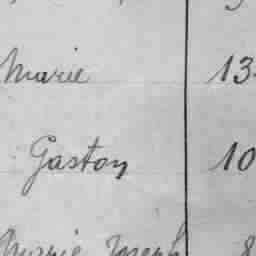 Marie 13
Gaston 10
Marie Joseph 8